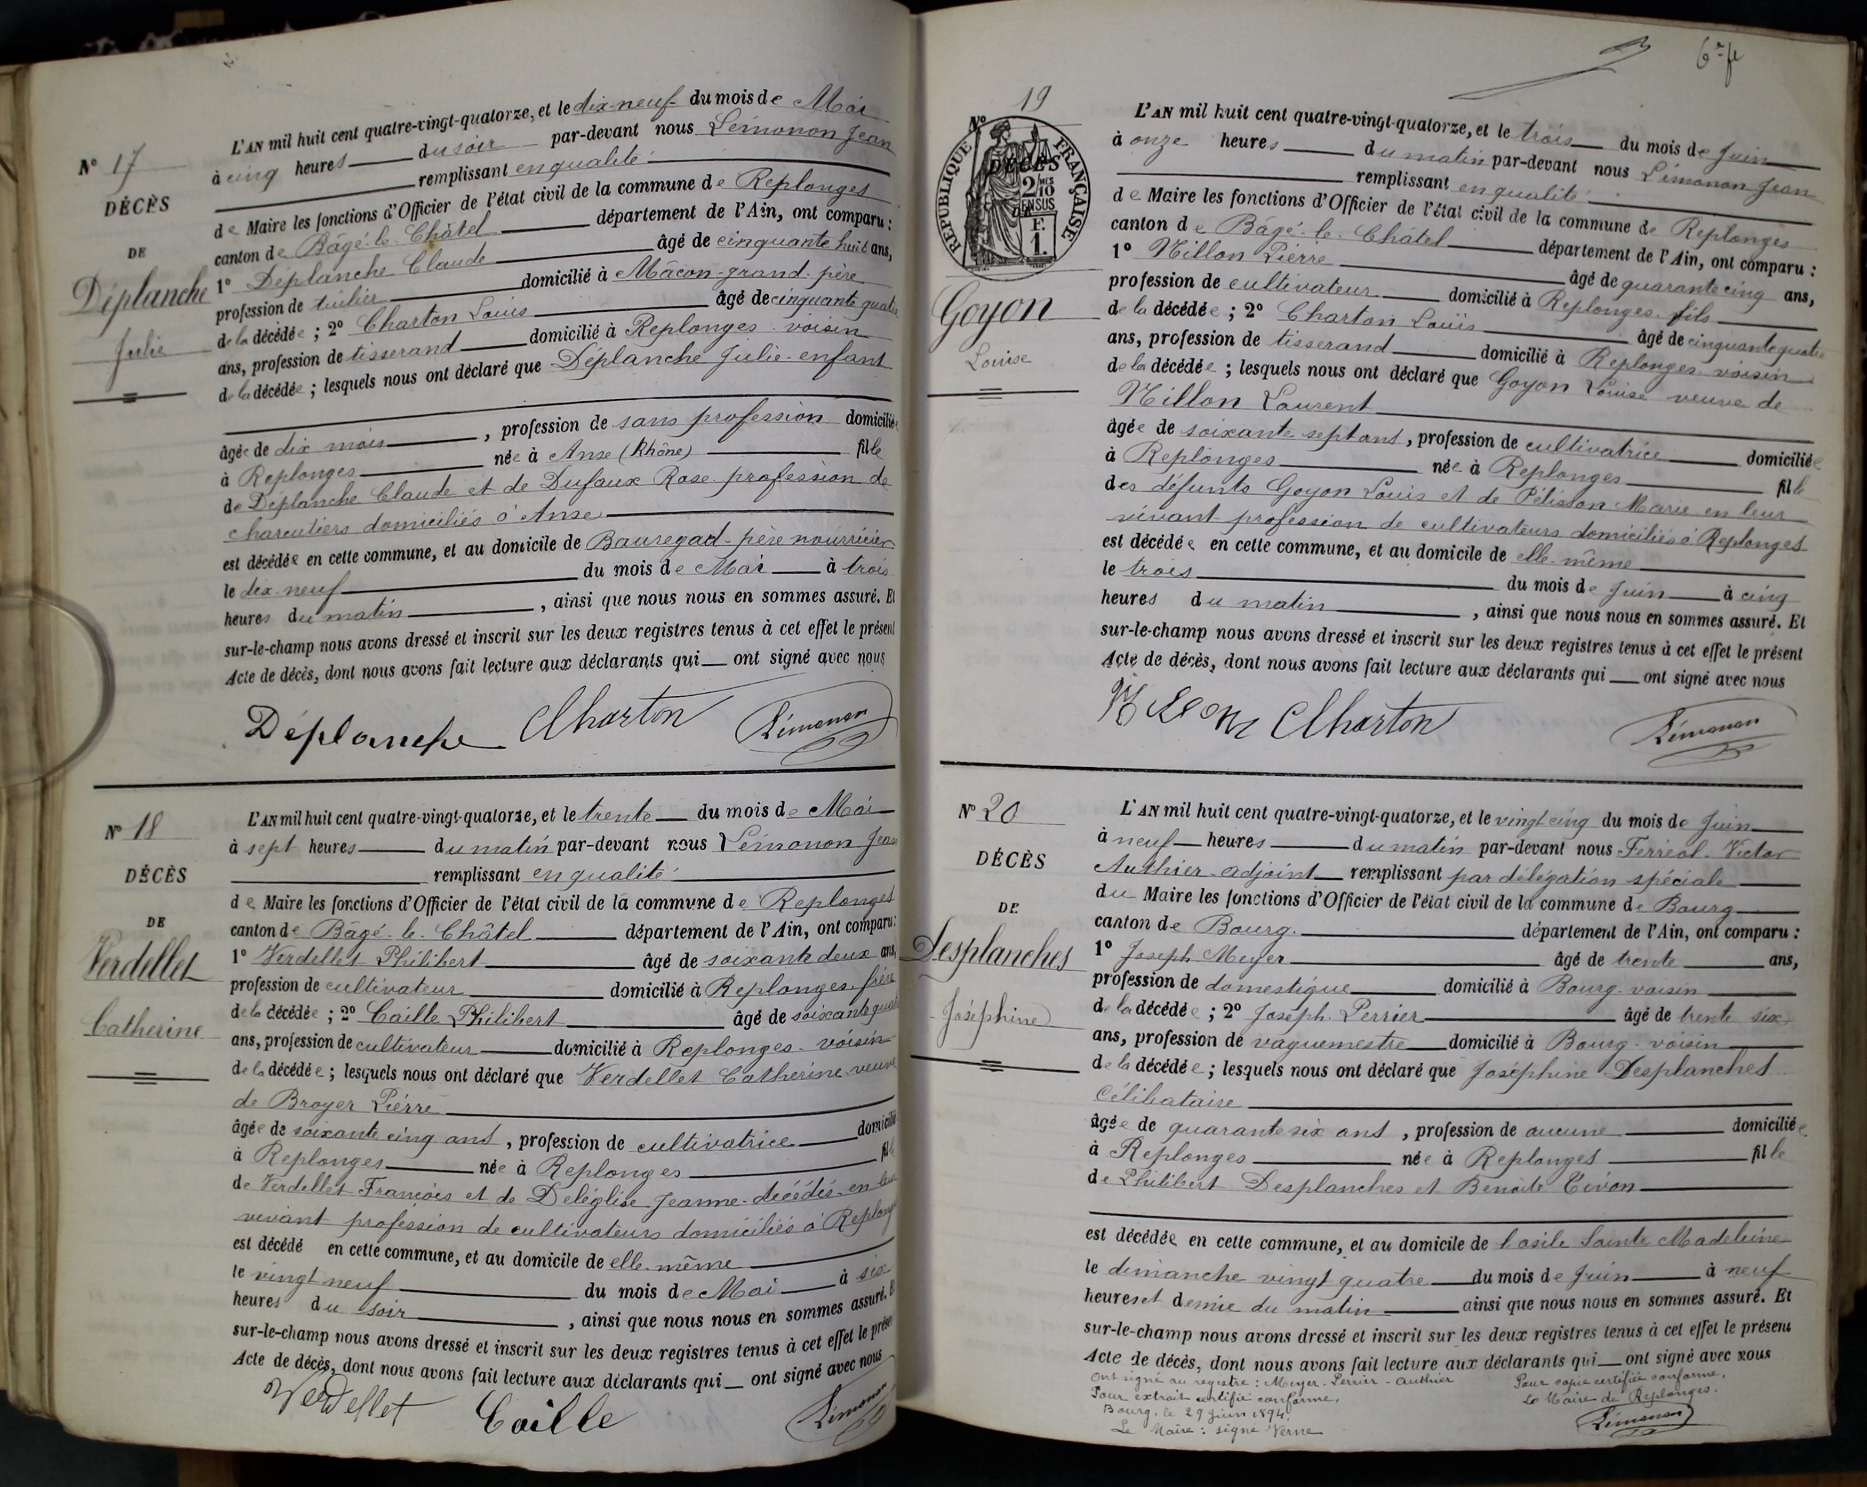 N° 17
DÉCÈS
DE
Déplanche
Julie
L'AN mil huit cent quatre-vingt-quatorze, et le dix-neuf du mois de Mai
à cinq heures du soir par-devant nous Lémonon Jean
remplissant en qualité
de Maire les fonctions d'Officier de l'état civil de la commune de Replonges
canton de Bâgé-le-Châtel département de l'Ain, ont comparu :
1° Déplanche Claude âgé de cinquante huit ans,
profession de tuilier domicilié à Mâcon-grand-père
de la décédée ; 2° Charton Louis âgé de cinquante quatre
ans, profession de tisserand domicilié à Replonges voisin
de la décédée ; lesquels nous ont déclaré que Déplanche Julie-enfant
âgée de dix mois, profession de sans profession domiciliée
à Replonges née à Anse (Rhône) fille
de Déplanche Claude et de Dufaux Rose profession de
charcutiers domiciliés à Anse
est décédée en cette commune, et au domicile de Bauregad-père nourricier
le dix-neuf du mois de Mai à trois
heures du matin, ainsi que nous nous en sommes assuré. Et
sur-le-champ nous avons dressé et inscrit sur les deux registres tenus à cet effet le présent
Acte de décès, dont nous avons fait lecture aux déclarants qui ont signé avec nous
Déplanche Charton Lémonon
N° 18
DÉCÈS
DE
Verdellet
Catherine
L'AN mil huit cent quatre-vingt-quatorze, et le trente du mois de Mai
à sept heures du matin par-devant nous Lémonon Jean
remplissant en qualité
de Maire les fonctions d'Officier de l'état civil de la commune de Replonges
canton de Bâgé-le-Châtel département de l'Ain, ont comparu :
1° Verdellet Philibert âgé de soixante deux ans,
profession de cultivateur domicilié à Replonges frère
de la décédée ; 2° Caille Philibert âgé de soixante quatre
ans, profession de cultivateur domicilié à Replonges-voisin
de la décédée ; lesquels nous ont déclaré que Verdellet Catherine veuve
de Broyer Pierre
âgée de soixante cinq ans, profession de cultivatrice domiciliée
à Replonges née à Replonges fille
de Verdellet François et de Deléglise Jeanne-décédés en leur
vivant profession de cultivateurs domiciliés à Replonges
est décédé en cette commune, et au domicile de elle-même
le vingt neuf du mois de Mai à six
heures du soir, ainsi que nous nous en sommes assuré. Et
sur-le-champ nous avons dressé et inscrit sur les deux registres tenus à cet effet le présent
Acte de décès, dont nous avons fait lecture aux déclarants qui ont signé avec nous
Verdellet Caille Lémonon
N° 19
RÉPUBLIQUE FRANÇAISE
DÉCÈS
2/10mes
EN SUS
F.
1.
Goyon
Louise
L'AN mil huit cent quatre-vingt-quatorze, et le trois du mois de Juin
à onze heures du matin par-devant nous Lémonon Jean
remplissant en qualité
de Maire les fonctions d'Officier de l'état civil de la commune de Replonges
canton de Bâgé-le-Châtel département de l'Ain, ont comparu :
1° Nillon Pierre âgé de quarante cinq ans,
profession de cultivateur domicilié à Replonges-fils
de la décédée ; 2° Charton Louis âgé de cinquante quatre
ans, profession de tisserand domicilié à Replonges voisin
de la décédée ; lesquels nous ont déclaré que Goyon Louise veuve de
Nillon Laurent
âgée de soixante sept ans, profession de cultivatrice domiciliée
à Replonges née à Replonges fille
des défunts Goyon Louis et de Pélisson Marie en leur
vivant profession de cultivateurs domiciliés à Replonges
est décédée en cette commune, et au domicile de elle-même
le trois du mois de Juin à cinq
heures du matin, ainsi que nous nous en sommes assuré. Et
sur-le-champ nous avons dressé et inscrit sur les deux registres tenus à cet effet le présent
Acte de décès, dont nous avons fait lecture aux déclarants qui ont signé avec nous
Charton Lémonon
N° 20
DÉCÈS
DE
Desplanches
Joséphine
L'AN mil huit cent quatre-vingt-quatorze, et le vingt cinq du mois de Juin
à neuf heures du matin par-devant nous Ferréol-Victor
Authier-adjoint remplissant par délégation spéciale
du Maire les fonctions d'Officier de l'état civil de la commune de Bourg
canton de Bourg. département de l'Ain, ont comparu :
1° Joseph Meyer âgé de trente ans,
profession de domestique domicilié à Bourg-voisin
de la décédée ; 2° Joseph Perrier âgé de trente six
ans, profession de vaguemestre domicilié à Bourg-voisin
de la décédée ; lesquels nous ont déclaré que Joséphine Desplanches
Célibataire
âgée de quarante six ans, profession de aucune domiciliée
à Replonges née à Replonges fille
de Philibert Desplanches et Benoîte Civon
est décédée en cette commune, et au domicile de l'asile Sainte Madeleine
le dimanche vingt quatre du mois de Juin à neuf
heures et demie du matin ainsi que nous nous en sommes assuré. Et
sur-le-champ nous avons dressé et inscrit sur les deux registres tenus à cet effet le présent
Acte de décès, dont nous avons fait lecture aux déclarants qui ont signé avec nous
Ont signé au registre : Meyer-Perrier-Authier
Pour extrait certifié conforme.
Bourg, le 29 Juin 1894.
Le Maire : signé Verne
Pour copie certifiée conforme,
Le Maire de Replonges.
Lémonon